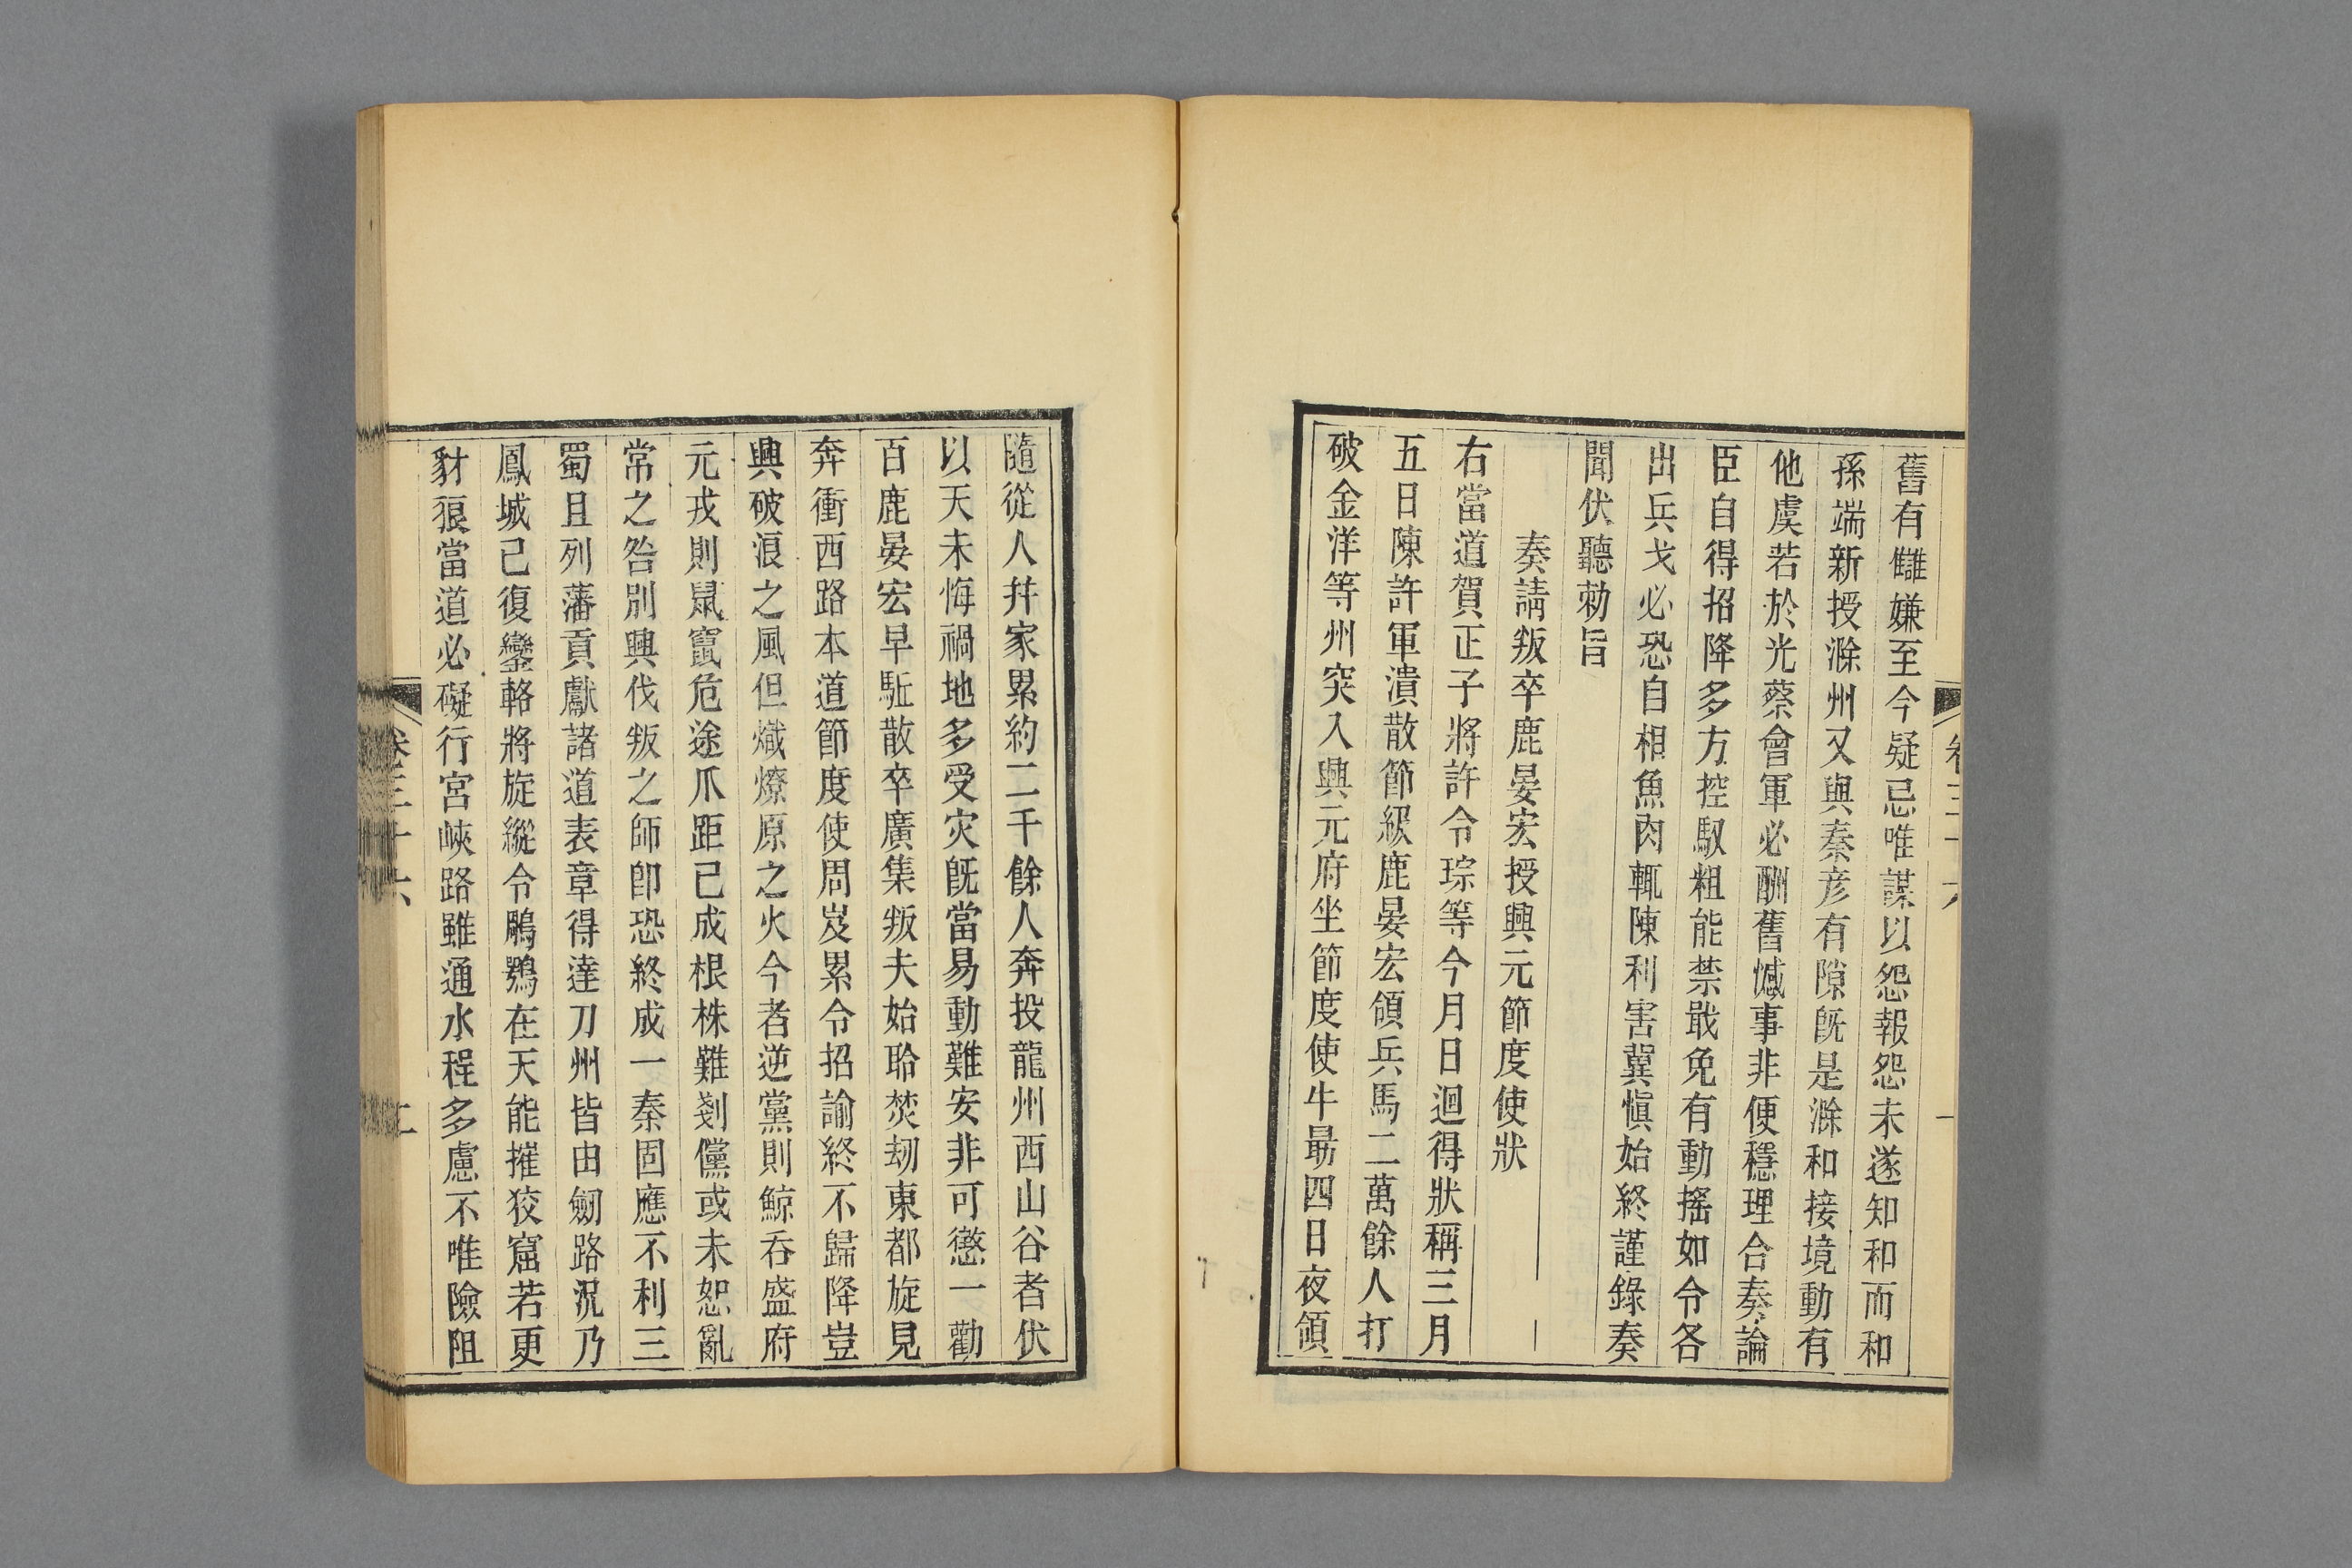 舊有讎嫌至今疑忌唯謀以怨報怨未遂知和而和
孫端新授滁州又與秦彥有隙旣是滁和接境動有
他虞若於光蔡會軍必酬舊憾事非便穩理合奏論
臣自得招降多方控馭粗能禁戢免有動搖如令各
出兵戈必恐自相魚肉輒陳利害冀愼始終謹錄奏
聞伏聽勅旨
奏請叛卒鹿晏宏授興元節度使狀
右當道賀正子將許令琮等今月日迴得狀稱三月
五日陳許軍潰散節級鹿晏宏領兵馬二萬餘人打
破金洋等州突入興元府坐節度使牛勗四日夜領
隨從人幷家累約二千餘人奔投龍州西山谷者伏
以天未悔禍地多受灾旣當易動難安非可懲一勸
百鹿晏宏早駈散卒廣集叛夫始聆焚刼東都旋見
奔衝西路本道節度使周岌累令招諭終不歸降豈
興破浪之風但熾燎原之火今者逆黨則鯨吞盛府
元戎則鼠竄危途爪距已成根株難剗儻或未恕亂
常之咎別興伐叛之師卽恐終成一秦固應不利三
蜀且列藩貢獻諸道表章得達刀州皆由劒路況乃
鳳城已復鑾輅將旋縱令鵰鶚在天能摧狡窟若更
豺狼當道必礙行宮峽路雖通水程多慮不唯險阻
卷三十六